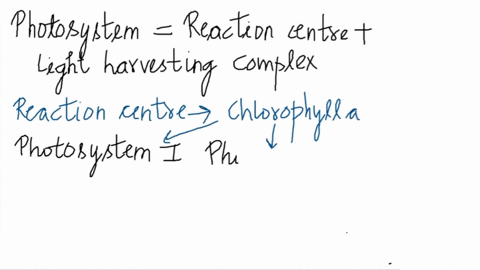 Photosystem = Reaction centre +
Light harvesting complex
Reaction centre → Chlorophyll a
Photosystem I Ph